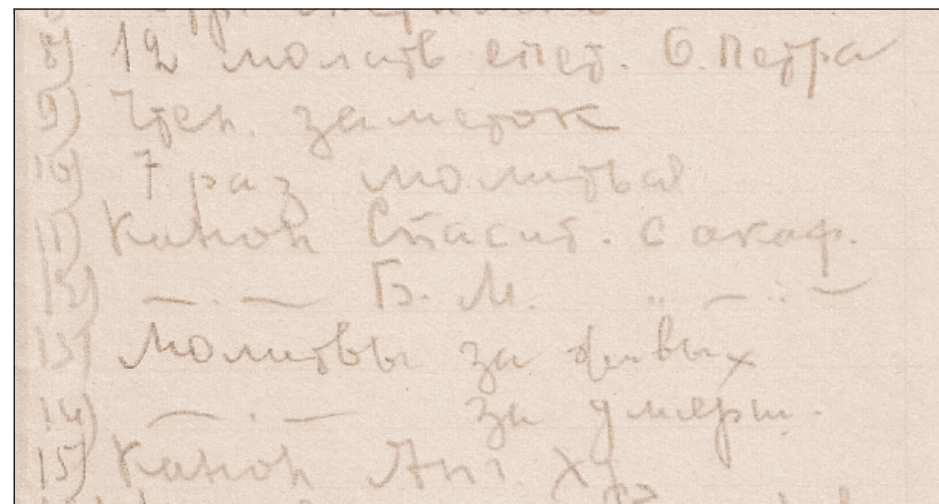 8) 12 молитв еп.ед. О. Петра
9) Чтен. заметок
10) 7 раз молитва
11) Канон Спасит. с акаф.
12) — . — Б. М. " — " —
13) Молитвы за живых
14) — . — за умерш.
15) Канон Анг. Хр.